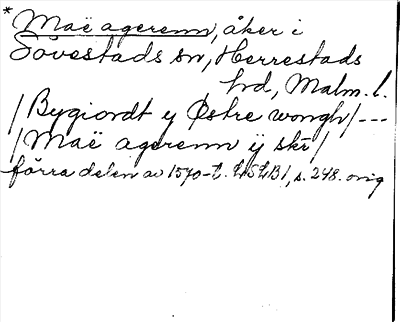 * Maë agerenn, åker i
Sövestads sn, Herrestads
hd, Malm. l.
/Bygiordt y Østre wongh/---
/Maë agerenn ÿ skr/
förra delen av 1570-t. LSLB1, s. 248. orig